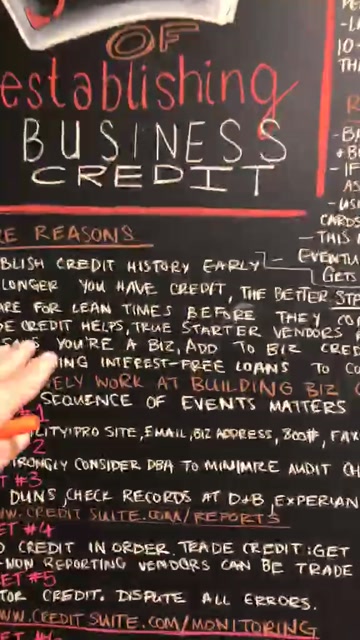 OF
establishing
BUSINESS
CREDIT
RE REASONS
BLISH CREDIT HISTORY EARLY
LONGER YOU HAVE CREDIT, THE BETTER
ARE FOR LEAN TIMES BEFORE THEY CO
DE CREDIT HELPS, TRUE STARTER VENDORS
YOU'RE A BIZ, ADD TO BIZ CRED
ING INTEREST-FREE LOANS TO CO
ELY WORK AT BUILDING BIZ C
SEQUENCE OF EVENTS MATTERS
#1
ILITY: PRO SITE, EMAIL, BIZ ADDRESS, 800#, FAX
2
TRONGLY CONSIDER DBA TO MINIMIZE AUDIT CH
T #3
DUNS, CHECK RECORDS AT D+B, EXPERIAN
WW.CREDITSUITE.COM/REPORTS
ET #4
D CREDIT IN ORDER. TRADE CREDIT: GET
-NON REPORTING VENDORS CAN BE TRADE
ET #5
TOR CREDIT. DISPUTE ALL ERRORS.
WWW.CREDITSUITE.COM/MONITORING
-L
10-
TH
-BA
+BU
-IF
A
-USI
CARDS
-THIS
EVENTU
GETS
STE